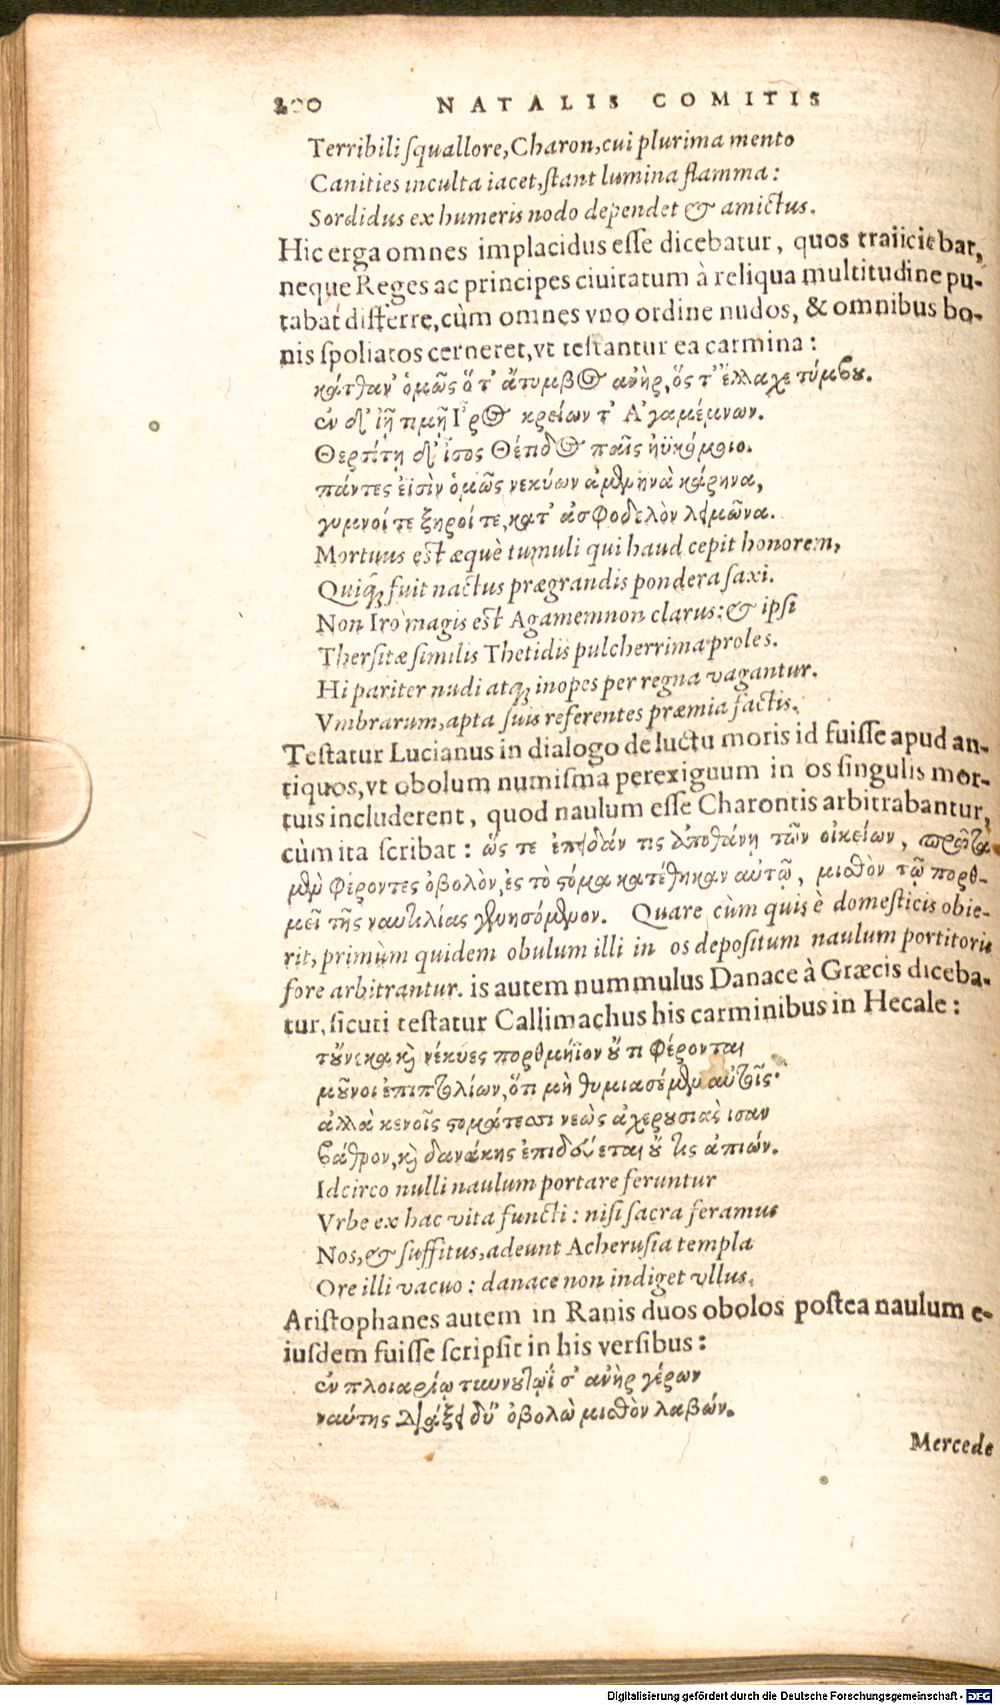 200 NATALIS COMITIS
Terribili ſquallore, Charon, cui plurima mento
Canities inculta iacet, ſtant lumina flamma:
Sordidus ex humeris nodo dependet & amictus.
Hic erga omnes implacidus eſſe dicebatur, quos traiiciebat,
neque Reges ac principes ciuitatum à reliqua multitudine pu-
tabat differre, cùm omnes vno ordine nudos, & omnibus bo-
nis ſpoliatos cerneret, vt teſtantur ea carmina:
κάτθαν' ὁμῶς ὅ τ' ἄτυμβος ἀνὴρ, ὅς τ' ἔλλαχε τύμβου.
ἐν δ' ἰῇ τιμῇ Ἶρος κρείων τ' Ἀγαμέμνων.
Θερσίτῃ δ' ἶσος Θέτιδος παῖς ἠϋκόμοιο.
πάντες εἰσὶν ὁμῶς νεκύων ἀμενηνὰ κάρηνα,
γυμνοί τε ξηροί τε, κατ' ἀσφοδελὸν λειμῶνα.
Mortuus eſt æquè tumuli qui haud cepit honorem,
Quiq; fuit nactus prægrandis pondera ſaxi.
Non Iro magis eſt Agamemnon clarus: & ipſi
Therſitæ ſimilis Thetidis pulcherrima proles.
Hi pariter nudi atq; inopes per regna vagantur.
Vmbrarum, apta ſuis referentes præmia factis.
Teſtatur Lucianus in dialogo de luctu moris id fuiſſe apud an-
tiquos, vt obolum numiſma perexiguum in os ſingulis mor-
tuis includerent, quod naulum eſſe Charontis arbitrabantur,
cùm ita ſcribat: ὥς τε ἐπειδάν τις ἀποθάνῃ τῶν οἰκείων, πρῶτα
μὲν φέροντες ὀβολὸν, ἐς τὸ στόμα κατέθηκαν αὐτῷ, μισθὸν τῷ πορθ-
μεῖ τῆς ναυτιλίας γενησόμενον. Quare cùm quis è domeſticis obie-
rit, primùm quidem obulum illi in os depoſitum naulum portitoris
fore arbitrantur. is autem nummulus Danace à Græcis diceba-
tur, ſicuti teſtatur Callimachus his carminibus in Hecale:
τοὔνεκα καὶ νέκυες πορθμήϊον οὔ τι φέρονται
μοῦνοι ἐπιπτολίων, ὅτι μὴ θυμιασέμεν αὐτοῖς·
ἀλλὰ κενοῖς στομάτεσσι νεὼς ἀχερουσιας ισαν
βάθρον, καὶ δανάκης ἐπιδεύεται οὔ τις ἀπιών.
Idcirco nulli naulum portare feruntur
Vrbe ex hac vita functi: niſi ſacra feramus
Nos, & ſuffitus, adeunt Acheruſia templa
Ore illi vacuo: danace non indiget vllus.
Ariſtophanes autem in Ranis duos obolos poſtea naulum e-
iuſdem fuiſſe ſcripſit in his verſibus:
ἐν πλοιαρίῳ τυννουτωΐ σ' ἀνὴρ γέρων
ναύτης διάξει δύ' ὀβολὼ μισθὸν λαβών.
Mercede
Digitalisierung gefördert durch die Deutsche Forschungsgemeinschaft - DFG